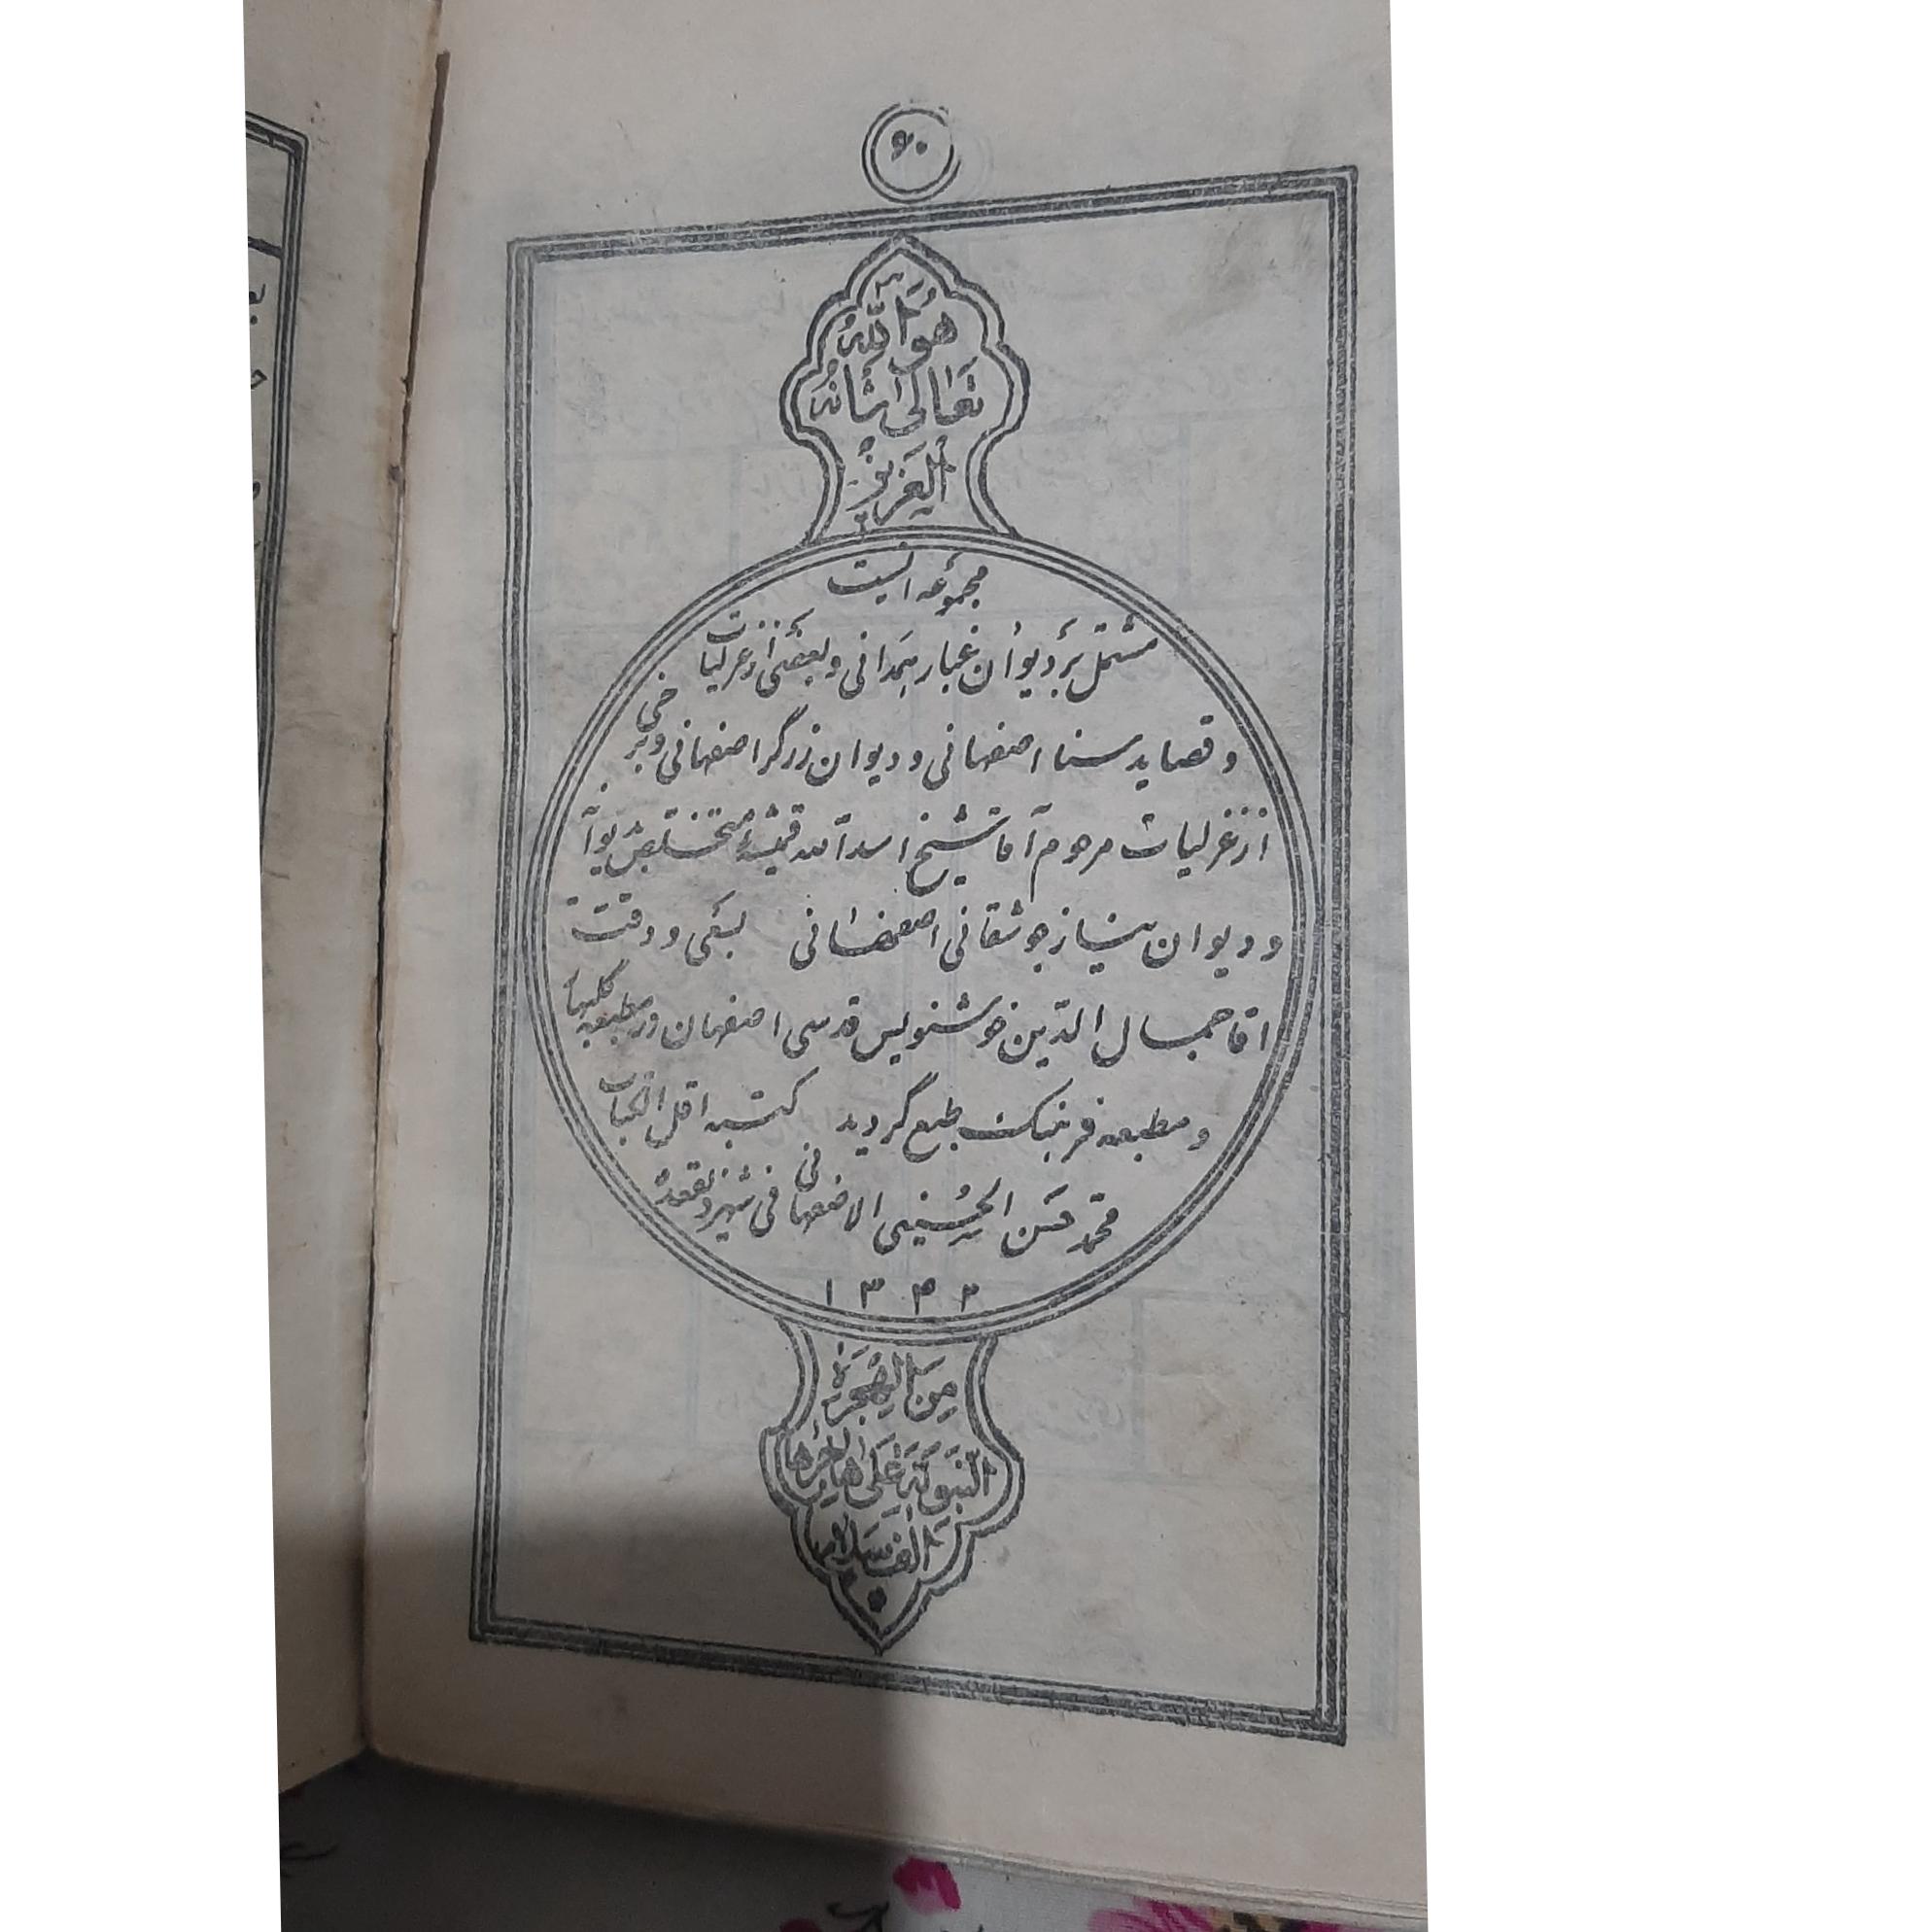 ۶۰
هُوَ اللّٰهُ
تَعَالٰی شَانُهُ
اَلْعَزِیزُ
مجموعه ایست
مشتمل بر دیوان غبار همدانی و بعضی از غزلیات
و قصاید سنا اصفهانی و دیوان زرگر اصفهانی و برخی
از غزلیات مرحوم آقا شیخ اسدالله قمشهٔ متخلص بدیوانه
و دیوان نیاز جوشقانی اصفهانی بسعی و دقت
اقا جمال الدین خوشنویس قدسی اصفهان در مطبعه گلبهار
و مطبعه فرهنگ طبع گردید کتبه اقل الکتاب
محمد حسن الحُسینی الاصفهانی فی شهر ذیقعده
۱۳۴۲
مِنَ الهِجرَةِ
النَّبَویَّة عَلیٰ هاجِرها
اَلف سَلام